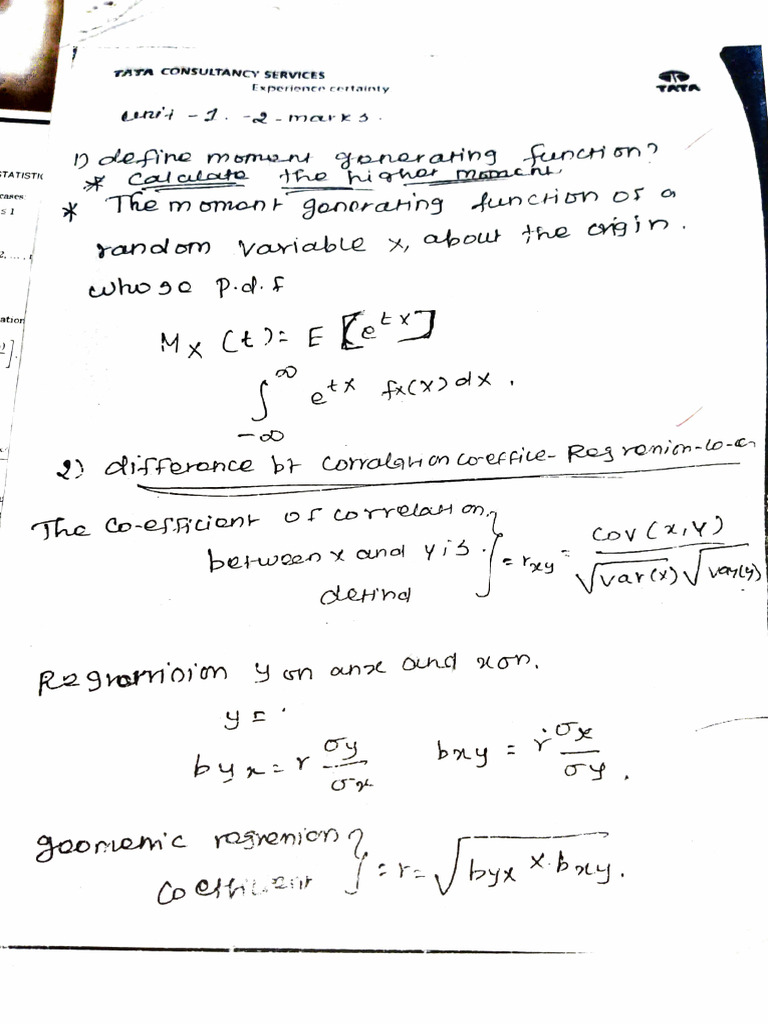 TATA CONSULTANCY SERVICES
Experience certainty
TATA
unit - 1. - 2 - marks.
1) define moment generating function?
* Calculate the higher moment.
* The moment generating function of a
random variable x, about the origin.
whose p.d.f
Mx (t) = E [e^{tx}]
∫_{-∞}^{∞} e^{tx} fx(x) dx.
2) difference bt correlation co-effice- Regrenion-co-e
The co-efficient of correlation
between x and y is
defind
} = rxy = cov(x,y) / √var(x) √var(y)
Regrarrision y on anx and xon.
y =
byx = r σy/σx bxy = r σx/σy.
geomemic regrenion
coefficient } = r = √byx × bxy.
STATISTIC
cases:
≤ 1
2, ...,
ation